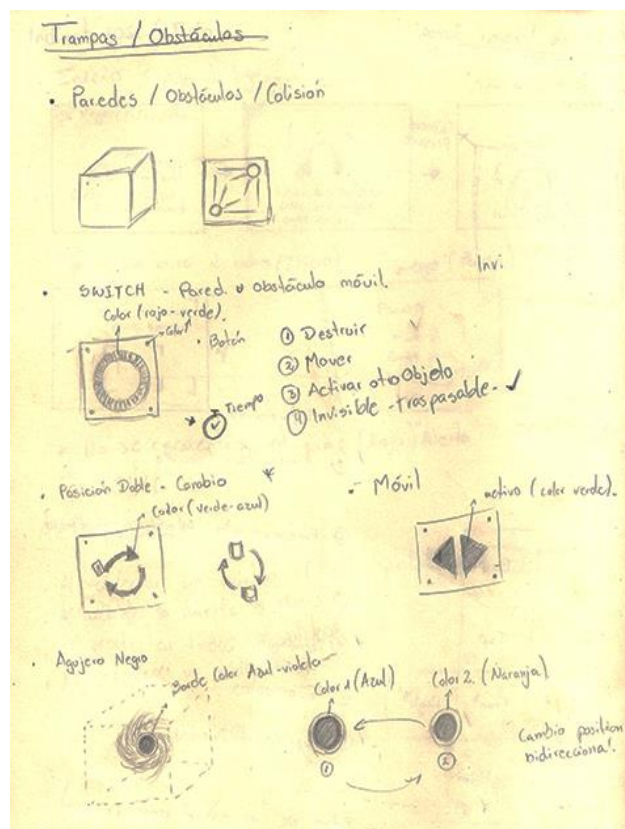 Trampas / Obstáculos
• Paredes / Obstáculos / Colisión
Invi.
• SWITCH - Pared u obstáculo móvil.
Color (rojo-verde).
Color
• Botón
① Destruir
② Mover
③ Activar otro Objeto
④ Invisible - traspasable - ✓
* Tiempo
• Posición Doble - Cambio *
Color (verde-azul)
• - Móvil
activo (color verde).
• Agujero Negro
Borde Color Azul-violeta
Color 1 (Azul)
Color 2. (Naranja)
①
②
Cambio position
bidireccional.